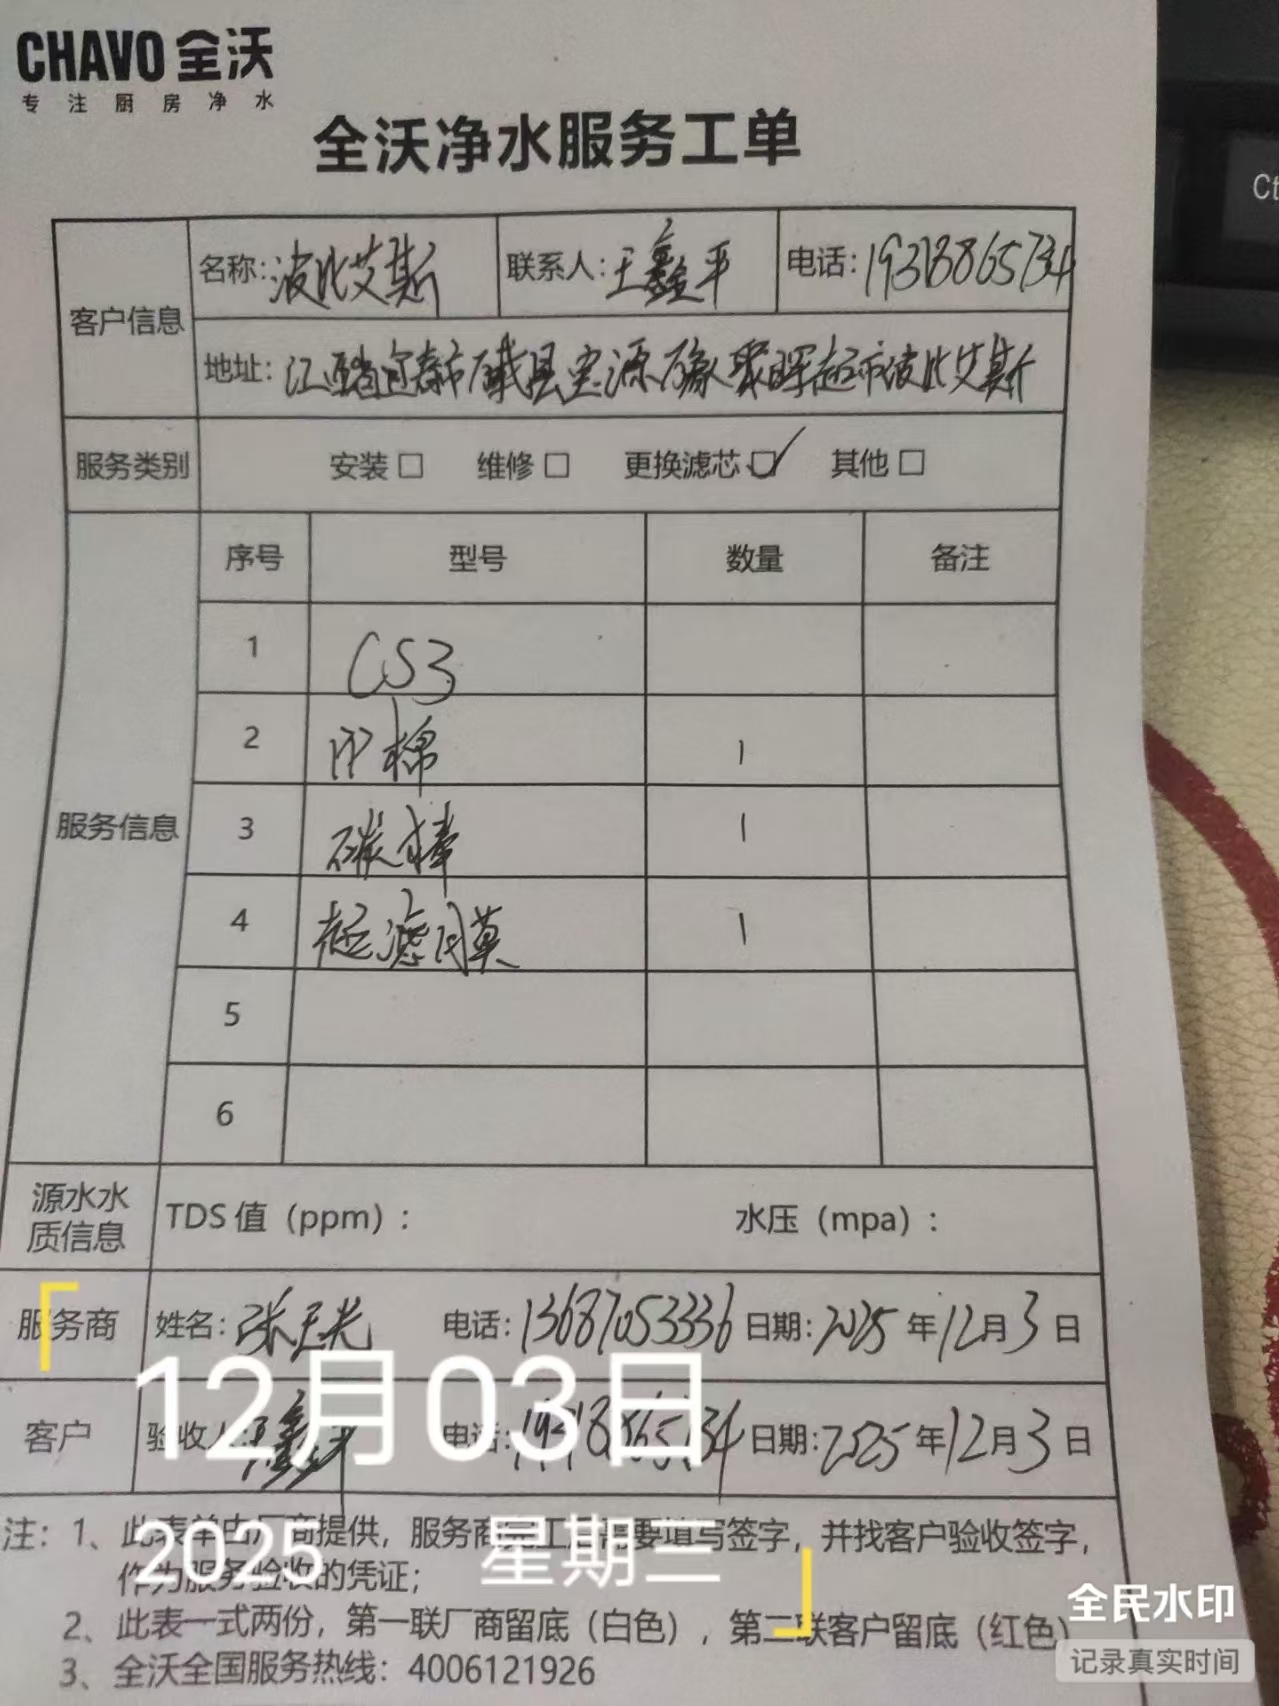 CHAVO 全沃
专注厨房净水
全沃净水服务工单
客户信息
名称:波比艾斯 联系人:王鑫平 电话:19318865734
地址:江西省宜春市 县宝源 聚晖超市波比艾斯
服务类别 安装□ 维修□ 更换滤芯☑ 其他□
服务信息
序号 型号 数量 备注
1 CS3
2 PP棉 1
3 碳棒 1
4 超滤膜 1
5
6
源水水质信息 TDS值(ppm): 水压(mpa):
服务商 姓名: 电话:13687053336 日期:2025年12月3日
客户 验收人: 电话: 日期:2025年12月3日
12月03日
2025 星期三
注:1、此表单由厂商提供,服务商完工后需要填写签字,并找客户验收签字,
作为服务验收的凭证;
2、此表一式两份,第一联厂商留底(白色),第二联客户留底(红色)
3、全沃全国服务热线:4006121926
全民水印
记录真实时间
Ct